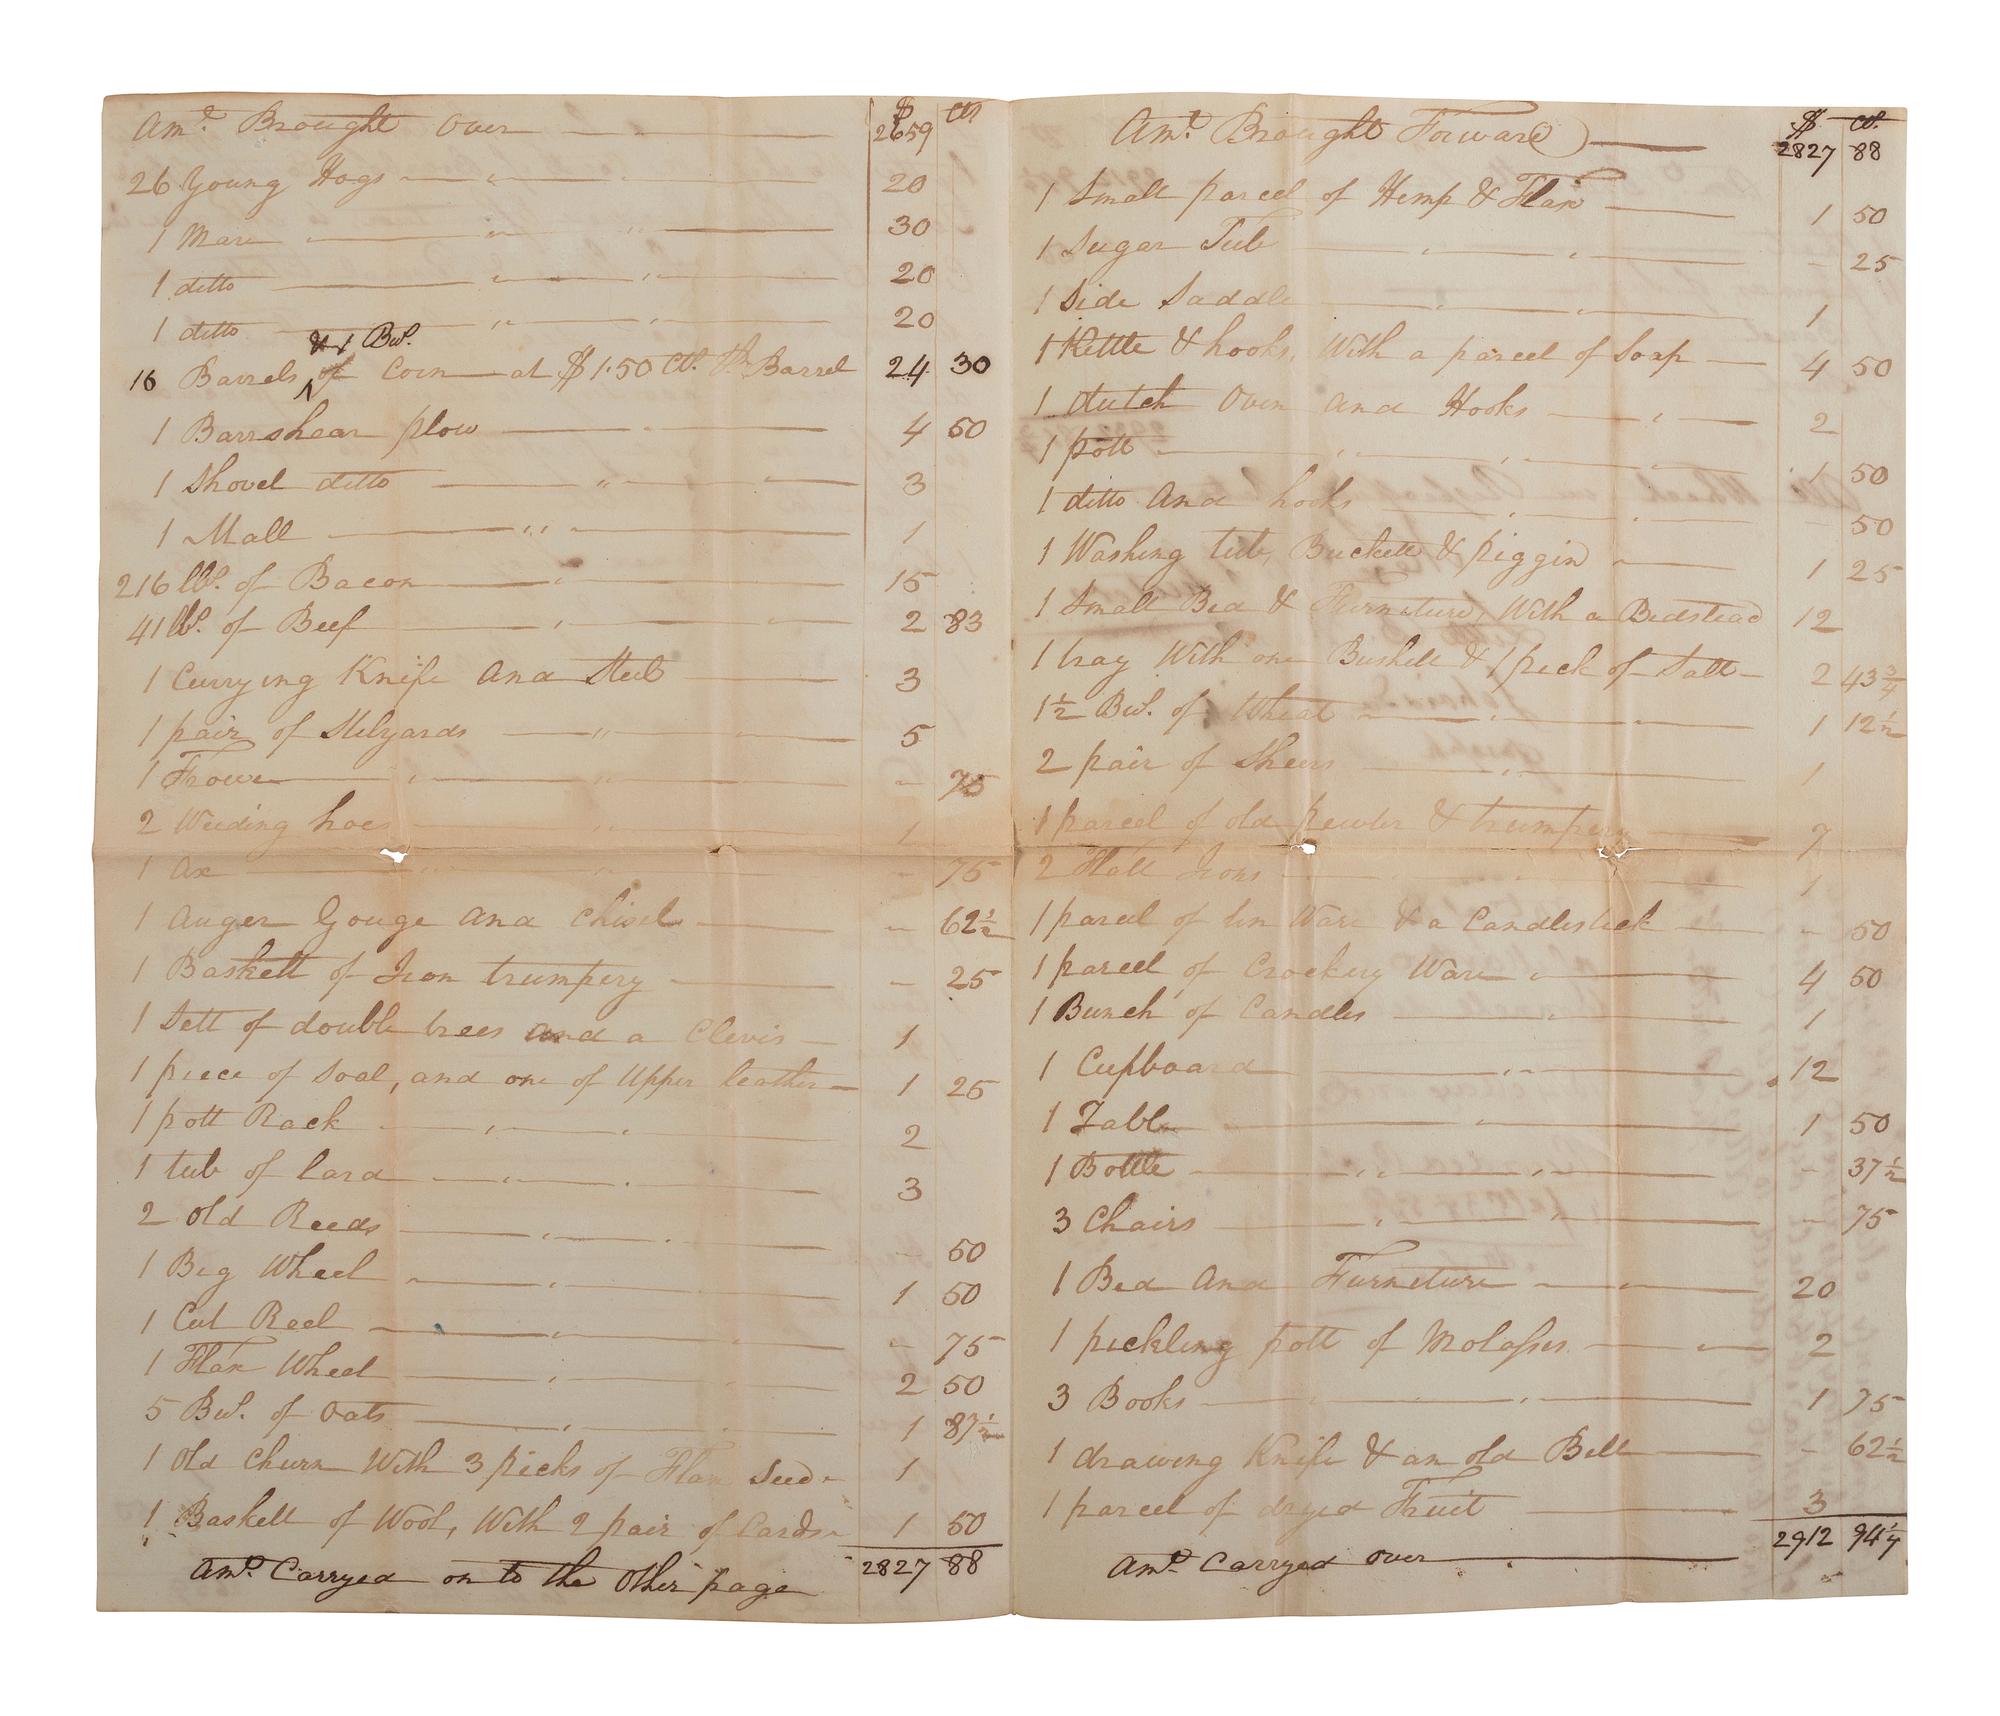 $ Cts
Amt. Brought Over 2659
26 Young Hogs 20
1 Mare 30
1 ditto 20
1 ditto 20
& 1 Bul.
16 Barrels of Corn at $1.50 Ct. Barrel 24 30
1 Barrshear plow 4 50
1 Shovel ditto 3
1 Mall 1
216 lbs. of Bacon 15
41 lbs. of Beef 2 83
1 Currying Knife And Steel 3
1 pair of Stilyards 5
1 Frowe - 75
2 Weeding hoes 1
1 Ax - 75
1 Auger Gouge And Chisel - 62 1/2
1 Baskett of Iron trumpery - 25
1 Sett of double trees and a Clevis 1
1 piece of Soal, and one of Upper leather 1 25
1 pott Rack 2
1 tub of Lard 3
2 old Reeds - 50
1 Big Wheel 1 50
1 Cut Reel - 75
1 Flax Wheel 2 50
5 Bul. of Oats 1 87 1/2
1 Old Churn With 3 pecks of Flax Seed 1
1 Baskett of Wool, With 2 pair of Cards 1 50
Amt. Carryed on to the Other page 2827 88
$ Ct.
Amt. Brought Forward 2827 88
1 Small parcel of Hemp & Flax 1 50
1 Sugar Tub - 25
1 Side Saddle 1
1 Kettle & hooks, With a parcel of Soap 4 50
1 dutch Oven And Hooks 2
1 pott 1 50
1 ditto And hooks - 50
1 Washing tub, Buckett & piggin 1 25
1 Small Bed & Furneture, With a Bedstead 12
1 tray With one Bushell & 1 peck of Salt 2 43 3/4
1 1/2 Bul. of Wheat 1 12 1/2
2 pair of Sheers 1
1 parcel of old pewter & trumpery 7
2 Flatt Irons 1
1 parcel of tin Ware & a Candlestick - 50
1 parcel of Crockery Ware 4 50
1 Bunch of Candles 1
1 Cupboard 12
1 Table 1 50
1 Bottle - 37 1/2
3 Chairs - 75
1 Bed And Furneture 20
1 pickling pott of Molasses 2
3 Books 1 75
1 drawing Knife & an old Bell - 62 1/2
1 parcel of dryed Fruit 3
Amt. Carryed over 2912 94 1/4